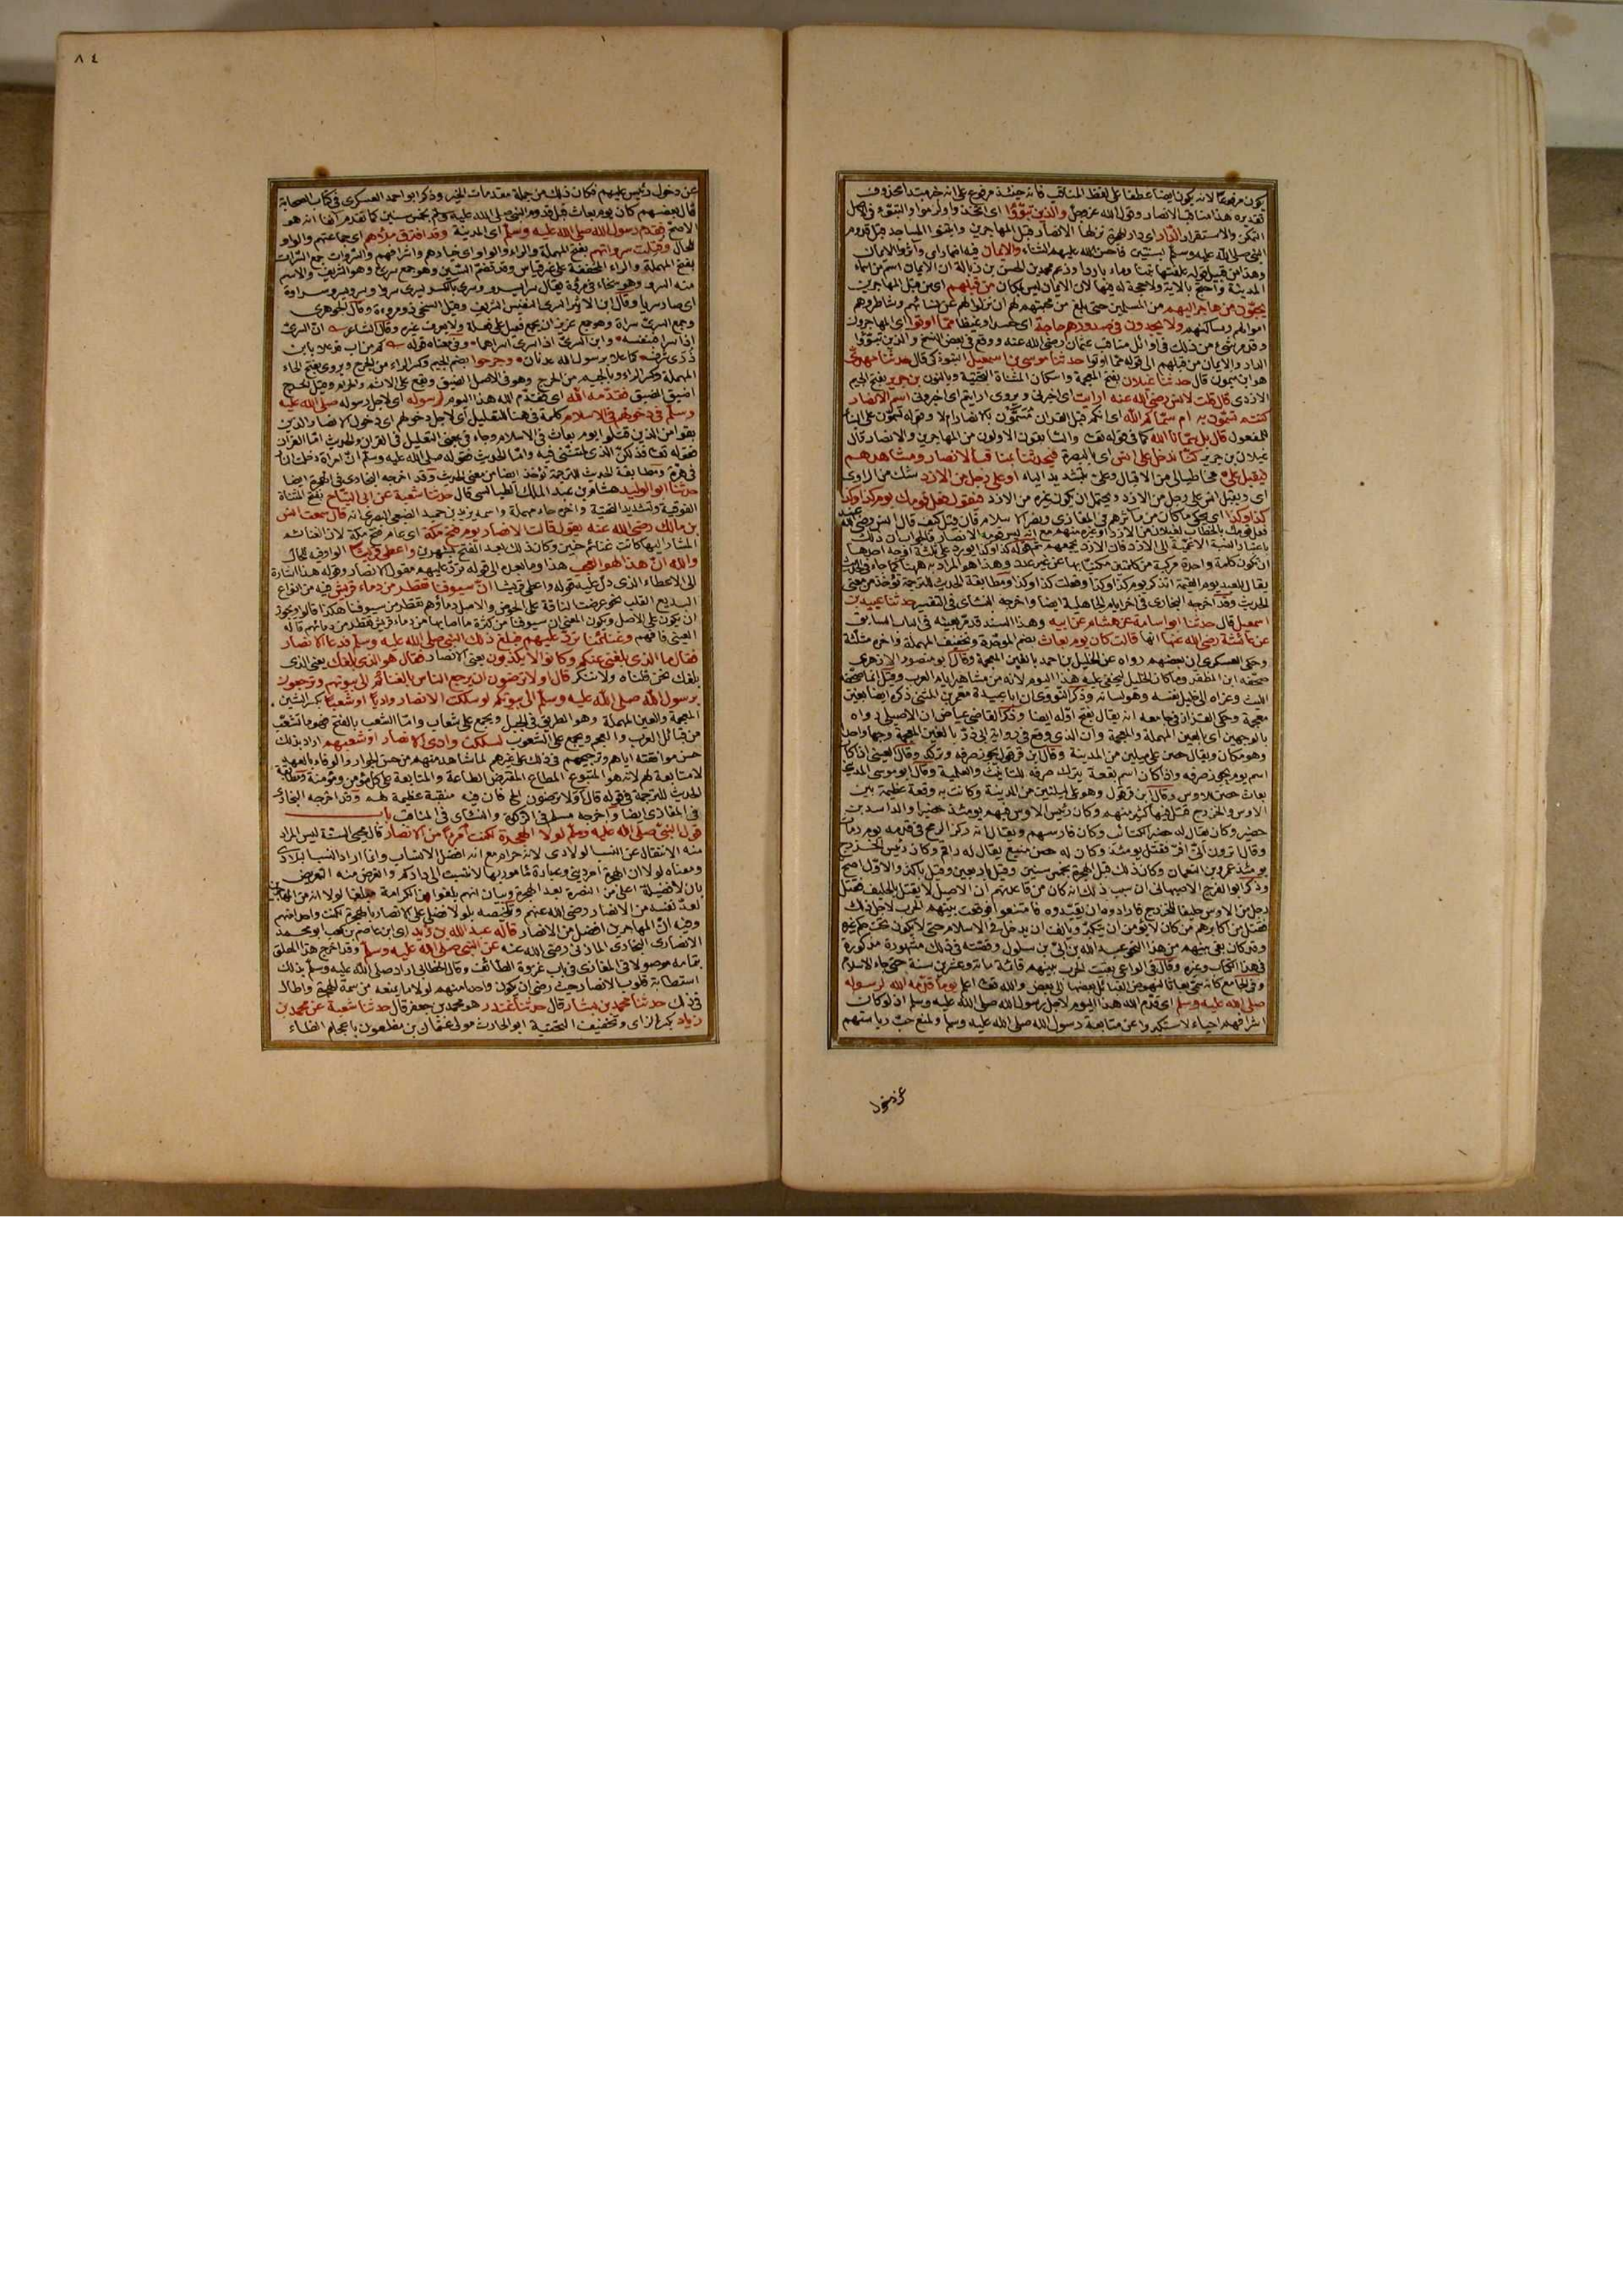 يكون مرفوعا لانه يكون ايضا عطفا على لفظ المناقب فانه حينئذ مرفوع على انه خبر مبتدأ محذوف
تقديره هذا مناقب الانصار وقول الله عز وجل والذين تبوّؤا اى اتخذوا ولزموا والتبوّء فى الاصل
التمكن والاستقرار الدار اى دار الهجرة نزلها الانصار قبل المهاجرين وابتنوا المساجد قبل قدوم
النبى صلى الله عليه وسلم بسنتين فاحسن الله عليهم الثناء والايمان فيه اضمار اى وآثروا الايمان
وهذا من قبيل قوله علفتها تبنا وماء باردا وزعم محمد بن الحسن بن زبالة ان الايمان اسم من اسماء
المدينة واحتج بالآية ولا حجة له فيها لان الايمان ليس بمكان من قبلهم اى من قبل المهاجرين
يحبّون من هاجر اليهم من المسلمين حتى بلغ من محبتهم لهم ان نزلوا لهم عن نسائهم وشاطروهم
اموالهم ومساكنهم ولا يجدون فى صدورهم حاجة اى حسدا وغيظا ممّا اوتوا اى المهاجرون
وقد مر شئ من ذلك فى اوائل مناقب عثمان رضى الله عنه ووقع فى بعض النسخ والذين تبوّؤا
الدار والايمان من قبلهم الى قوله مما اوتوا حدثنا موسى بن اسمعيل التبوذكى قال حدثنا مهدى
هو ابن ميمون قال حدثنا غيلان بفتح المعجمة واسكان المثناة التحتية وبالنون بن جرير بفتح الجيم
الازدى قال قلت لانس رضى الله عنه ارايت اى اخبرنى ويروى ارايتم اى اخبرونى اسم الانصار
كنتم تسمّون به ام سمّاكم الله اى انكم قبل القرآن تسمّون بالانصار ام لا وقوله تسمّون على البناء
للمفعول قال بل سمّانا الله كما فى قوله تعالى والسابقون الاولون من المهاجرين والانصار قال
غيلان بن جرير كنّا ندخل على انس اى بالبصرة فيحدثنا بمناقب الانصار ومشاهدهم
فيقبل علىّ مخاطبا لى من الاقبال وعلىّ بتشديد الياء او على رجل من الازد شك من الراوى
اى ويقبل انس على رجل من الازد ويحتمل ان يكون غيره من الازد فيقول فعل قومك يوم كذا وكذا
كذا وكذا اى يحكى ما كان من مآثرهم فى المغازى ونصر الاسلام فان قيل كيف قال انس رضى الله عنه
فعل قومك بالخطاب لغيلان من الازد او غيره منهم مع انه ليس قومه الانصار فالجواب ان ذلك
باعتبار النسبة الاعمية الى الازد فان الازد يجمعهم ثم قوله كذا وكذا يورد على ثلاثة اوجه احدها
ان تكون كلمة واحدة مركبة من كلمتين مكنيا بها عن غير عدد وهذا هو المراد به ههنا كما جاء فى الحديث
يقال للعبد يوم القيمة اتذكر يوم كذا وكذا وفعلت كذا وكذا ومطابقة الحديث للترجمة تؤخذ من معنى
الحديث وقد اخرجه البخارى فى اخر ايام الجاهلية ايضا واخرجه النسائى فى التفسير حدثنا عبيد بن
اسمعيل قال حدثنا ابو اسامة عن هشام عن ابيه وهذا السند قد مر بعينه فى الباب السابق
عن عائشة رضى الله عنها انها قالت كان يوم بعاث بضم الموحدة وتخفيف المهملة واخره مثلثة
وحكى العسكرى ان بعضهم رواه عن الخليل بن احمد بالغين المعجمة وقال ابو منصور الازهرى
صحّفه ابن المظفر وما كان الخليل ليخفى عليه هذا اليوم لانه من مشاهير ايام العرب وقيل انما صحّفه
الليث وعزاه الى الخليل نفسه وهو لسانه وذكر النووى ان ابا عبيدة معمر بن المثنى ذكره ايضا بغين
معجمة وحكى القزاز فى جامعه انه يقال بفتح اوله ايضا وذكر القاضى عياض ان الاصيلى رواه
بالوجهين اى بالعين المهملة والمعجمة وان الذى وقع فى رواية ابى ذر بالغين المعجمة وجها واحدا
وهو مكان ويقال حصن على ميلين من المدينة وقال ابن قرقول يجوز صرفه وتركه وقال العينى اذا كان
اسم يوم يجوز صرفه واذا كان اسم بقعة يترك صرفه للتانيث والعلمية وقال ابو موسى المدينى
بعاث حصن للاوس وقال ابن قرقول وهو على ليلتين من المدينة وكانت به وقعة عظيمة بين
الاوس والخزرج قتل فيها كثير منهم وكان رئيس الاوس فيهم يومئذ حضيرا والد اسيد بن
حضير وكان يقال له حضير الكتائب وكان فارسهم ويقال انه ركز الرمح فى قدمه يوم بعاث
وقال اترون انّى افرّ فقتل يومئذ وكان له حصن منيع يقال له واقم وكان رئيس الخزرج
يومئذ عمرو بن النعمان وكان ذلك قبل الهجرة بخمس سنين وقيل باربعين وقيل باكثر والاول اصح
وذكر ابو الفرج الاصبهانى ان سبب ذلك انه كان من قاعدتهم ان الاصيل لا يقتل بالحليف فقتل
رجل من الاوس حليفا للخزرج فارادوا ان يقيّدوه فامتنعوا فوقعت بينهم الحرب لاجل ذلك
فقتل من اكابرهم من كان لا يؤمن ان يتكبّر ويأنف ان يدخل فى الاسلام حتى لا يكون تحت حكم غيره
وقد كان بقى منهم من هذا النحو عبد الله بن ابىّ بن سلول وقصته فى ذلك مشهورة مذكورة
فى هذا الكتاب وغيره وقال فى الواعى بقيت الحرب بينهم قائمة مائة وعشرين سنة حتى جاء الاسلام
وفى الجامع كانه سمّى بعاثا لنهوض القبائل بعضها الى بعض والله تعالى اعلم يوما قدّمه الله لرسوله
صلى الله عليه وسلم اى قدّم الله هذا اليوم لاجل رسول الله صلى الله عليه وسلم اذ لو كان
اشرافهم احياء لاستكبروا عن متابعة رسول الله صلى الله عليه وسلم ولمنع حبّ رياستهم
عن دخول
٨٤
عن دخول رئيس عليهم فكان ذلك من جملة مقدمات الخير وذكر ابو احمد العسكرى فى كتاب الصحابة
قال بعضهم كان يوم بعاث قبل قدوم النبى صلى الله عليه وسلم بخمس سنين كما تقدم آنفا انه هو
الاصح فقدم رسول الله صلى الله عليه وسلم اى المدينة وقد افترق ملؤهم اى جماعتهم والواو
للحال وقتلت سرواتهم بفتح المهملة والراء والواو اى خيارهم واشرافهم والسروات جمع السراة
بفتح المهملة والراء المخففة على غير قياس وقد تضمّ السين وهو جمع سرىّ وهو الشريف والاسم
منه السرو وهو سخاء فى مروّة يقال سرا يسرو وسرى بالكسر يسرى سروا وسرو يسرو سراوة
اى صار سريا وقال ابن الاثير السرى النفيس الشريف وقيل السخى ذو مروءة وقال الجوهرى
وجمع السرىّ سراة وهو جمع عزيز ان يجمع فعيل على فعلة ولا يعرف غيره وقال الشاعر ان السرىّ
اذا سرا فبنفسه وابن السرىّ اذا سرى اسراهما وفى معناه قوله كم من اب قد علا بابن
ذُرَى شرف كما علا برسول الله عدنان وجرحوا بضم الجيم وكسر الراء من الجرح ويروى بفتح الحاء
المهملة وكسر الراء وبالجيم من الحرج وهو فى الاصل الضيق ويقع على الاثم والحرام وقيل الحرج
اضيق الضيق فقدّمه الله اى فقدّم الله هذا اليوم لرسوله اى لاجل رسوله صلى الله عليه
وسلم فى دخولهم فى الاسلام كلمة فى هنا للتعليل اى لاجل دخولهم اى دخول الانصار الذين
بقوا من الذين قتلوا يوم بعاث فى الاسلام وجاء فى بمعنى التعليل فى القرآن والحديث امّا القرآن
فقوله تعالى فذلكنّ الذى لمتنّنى فيه وامّا الحديث فقوله صلى الله عليه وسلم انّ امرأة دخلت النار
فى هرّة ومطابقة الحديث للترجمة تؤخذ ايضا من معنى الحديث وقد اخرجه البخارى فى الهجرة ايضا
حدثنا ابو الوليد هشام بن عبد الملك الطيالسى قال حدثنا شعبة عن ابى التيّاح بفتح المثناة
الفوقية وتشديد التحتية واخره حاء مهملة واسمه يزيد بن حميد الضبعى البصرى انه قال سمعت انس
بن مالك رضى الله عنه يقول قالت الانصار يوم فتح مكة اى عام فتح مكة لان الغنائم
المشار اليها كانت غنائم حنين وكان ذلك بعد الفتح بشهرين واعطى قريشا الواو فيه للحال
والله انّ هذا لهو العجب هذا وما بعده الى قوله تردّ عليهم مقول الانصار وقوله هذا اشارة
الى الاعطاء الذى دلّ عليه قوله واعطى قريشا انّ سيوفنا تقطر من دماء قريش فيه من انواع
البديع القلب نحو عرضت الناقة على الحوض والاصل دماؤهم تقطر من سيوفنا هكذا قالوا ويجوز
ان يكون على الاصل ويكون المعنى ان سيوفنا من كثرة ما اصابها من دماء قريش تقطر من دمائهم قاله
العينى فافهم وغنائمنا تردّ عليهم فبلغ ذلك النبى صلى الله عليه وسلم فدعا الانصار
فقال ما الذى بلغنى عنكم وكانوا لا يكذبون يعنى الانصار فقال هو الذى بلغك يعنى الذى
بلغك نحن قلناه ولا ننكر قال اولا ترضون ان يرجع الناس بالغنائم الى بيوتهم وترجعون
برسول الله صلى الله عليه وسلم الى بيوتكم لو سلكت الانصار واديا او شعبا بكسر الشين
المعجمة والعين المهملة وهو الطريق فى الجبل ويجمع على شعاب وامّا الشعب بالفتح فهو ما تشعّب
من قبائل العرب والعجم ويجمع على الشعوب لسلكت وادى الانصار او شعبهم اراد بذلك
حسن موافقته اياهم وترجيحهم فى ذلك على غيرهم لما شاهد منهم من حسن الجوار والوفاء بالعهد
لا متابعة لهم لانه هو المتبوع المطاع المفترض الطاعة والمتابعة على كل مؤمن ومؤمنة ومطابقة
الحديث للترجمة فى قوله قال اولا ترضون الخ فان فيه منقبة عظيمة لهم وقد اخرجه البخارى
فى المغازى ايضا واخرجه مسلم فى الزكوة والنسائى فى المناقب باب
قول النبى صلى الله عليه وسلم لولا الهجرة لكنت امرأً من الانصار قال محيى السنة ليس المراد
منه الانتقال عن النسب الولادى لانه حرام مع انه افضل الانساب وانما اراد النسب البلادى
ومعناه لولا ان الهجرة امر دينى وعبادة مأمور بها لانتسبت الى داركم والغرض منه التعريض
بان لا فضيلة اعلى من النصرة بعد الهجرة وبيان انهم بلغوا من الكرامة مبلغا لولا انه من المهاجرين
لعدّ نفسه من الانصار رضى الله عنهم وتلخيصه لولا فضلى على الانصار بالهجرة لكنت واحدا منهم
وفيه انّ المهاجرين افضل من الانصار قاله عبد الله بن زيد اى ابن عاصم بن كعب ابو محمد
الانصارى البخارى المازنى رضى الله عنه عن النبى صلى الله عليه وسلم وقد اخرج هذا المعلق
بتمامه موصولا فى المغازى فى باب غزوة الطائف وقال الخطابى اراد صلى الله عليه وسلم بذلك
استطابة قلوب الانصار حيث رضى ان يكون واحدا منهم لولا ما يمنعه من سمة الهجرة واطال
فى ذلك حدثنا محمد بن بشار قال حدثنا غندر هو محمد بن جعفر قال حدثنا شعبة عن محمد بن
زياد بكسر الزاى وتخفيف التحتية ابو الحارث مولى عثمان بن مظعون باعجام الظاء